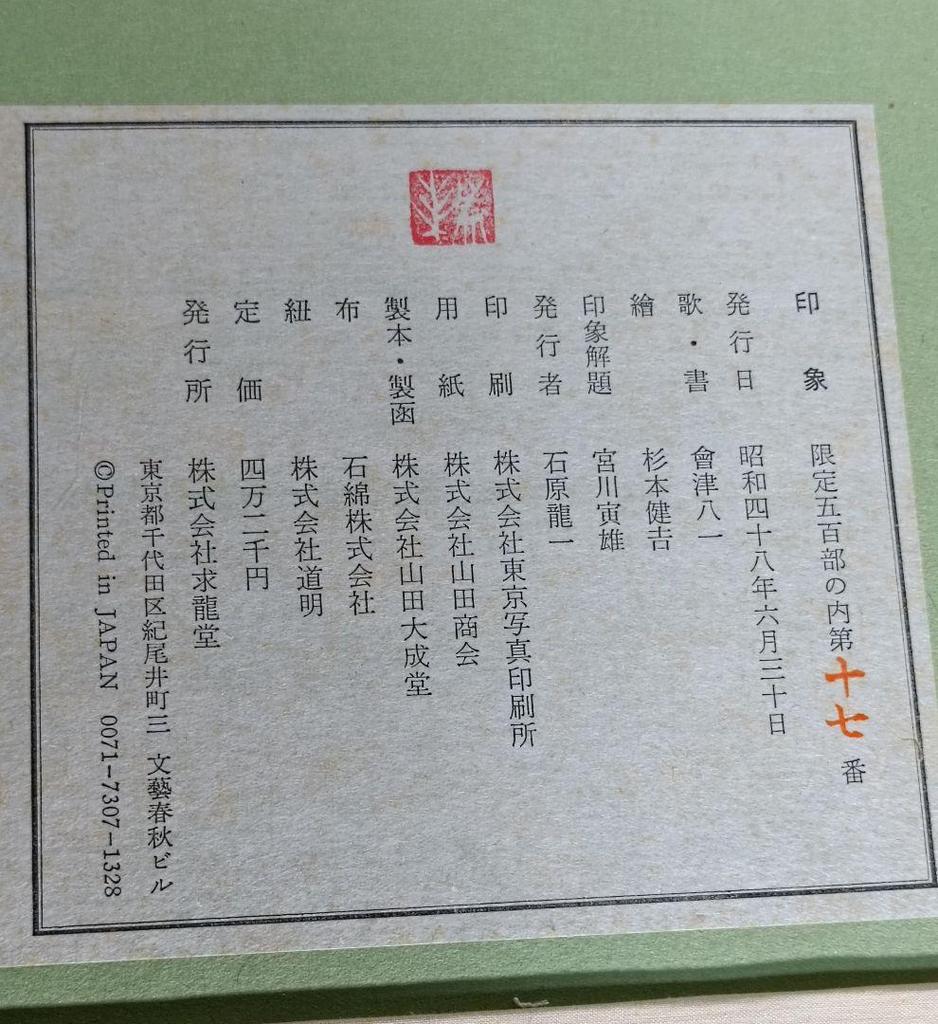 印象 限定五百部の内第十七番
発行日 昭和四十八年六月三十日
歌・書 會津八一
繪 杉本健吉
印象解題 宮川寅雄
発行者 石原龍一
印刷 株式会社東京写真印刷所
用紙 株式会社山田商会
製本・製函 株式会社山田大成堂
布 石綿株式会社
紐 株式会社道明
定価 四万二千円
発行所 株式会社求龍堂
東京都千代田区紀尾井町三 文藝春秋ビル
©Printed in JAPAN 0071-7307-1328